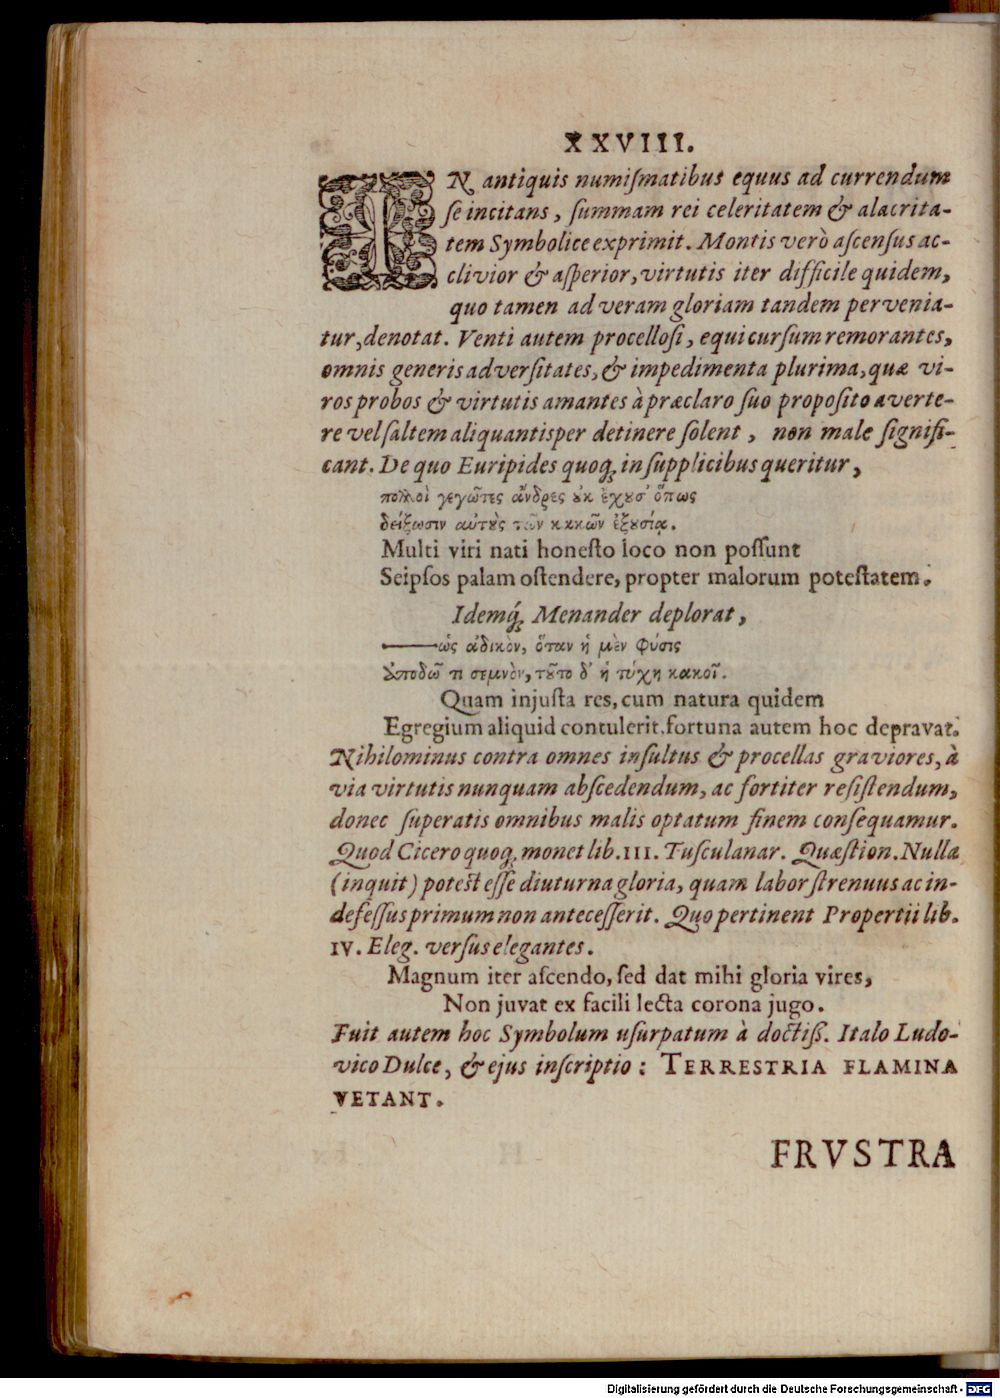 XXVIII.
IN antiquis numiſmatibus equus ad currendum
ſe incitans, ſummam rei celeritatem & alacrita-
tem Symbolice exprimit. Montis verò aſcenſus ac-
clivior & aſperior, virtutis iter difficile quidem,
quo tamen ad veram gloriam tandem pervenia-
tur, denotat. Venti autem procelloſi, equi curſum remorantes,
omnis generis adverſitates, & impedimenta plurima, quæ vi-
ros probos & virtutis amantes à præclaro ſuo propoſito averte-
re vel ſaltem aliquantisper detinere ſolent, non male ſignifi-
cant. De quo Euripides quoq; in ſupplicibus queritur,
πολλοὶ γεγῶτες ἄνδρες ȣκ ἐχȣσ' ὅπως
δείξωσιν αὐτȣ̀ς τῶν κακῶν ἐξȣσίᾳ.
Multi viri nati honeſto loco non poſſunt
Seipſos palam oſtendere, propter malorum poteſtatem.
Idemq́; Menander deplorat,
——ὡς ἀδικὸν, ὅταν ἡ μὲν φύσις
ὑποδῶ τι σεμνὸν, τȣ͂το δ' ἡ τύχη κακοῖ.
Quam injuſta res, cum natura quidem
Egregium aliquid contulerit, fortuna autem hoc depravat.
Nihilominus contra omnes inſultus & procellas graviores, à
via virtutis nunquam abſcedendum, ac fortiter reſiſtendum,
donec ſuperatis omnibus malis optatum finem conſequamur.
Quod Cicero quoq; monet lib. III. Tuſculanar. Quæſtion. Nulla
(inquit) poteſt eſſe diuturna gloria, quam labor ſtrenuus ac in-
defeſſus primum non anteceſſerit. Quo pertinent Propertii lib.
IV. Eleg. verſus elegantes.
Magnum iter aſcendo, ſed dat mihi gloria vires,
Non juvat ex facili lecta corona jugo.
Fuit autem hoc Symbolum uſurpatum à doctiß. Italo Ludo-
vico Dulce, & ejus inſcriptio: TERRESTRIA FLAMINA
VETANT.
FRVSTRA
Digitalisierung gefördert durch die Deutsche Forschungsgemeinschaft - DFG